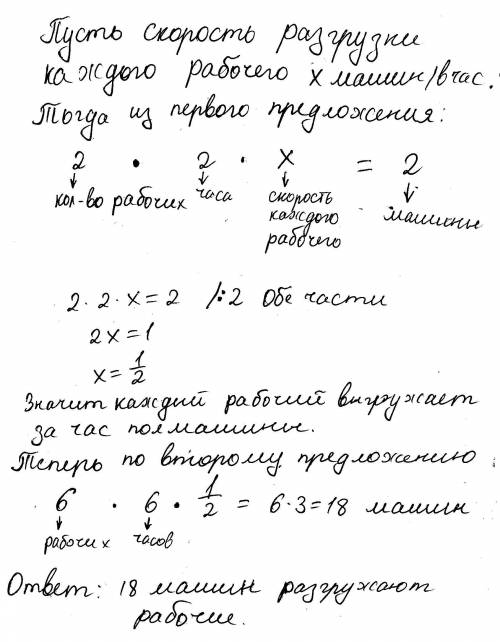 Пусть скорость разгрузки
каждого рабочего х машин/вчас.
Тогда из первого предложения:
2 · 2 · х = 2
↓ кол-во рабочих ↓ часа ↓ скорость каждого рабочего ↓ машины
2 · 2 · х = 2 /:2 Обе части
2х = 1
х = 1/2
Значит каждый рабочий выгружает
за час полмашины.
Теперь по второму предложению
6 · 6 · 1/2 = 6·3=18 машин
↓ рабочих ↓ часов
Ответ: 18 машин разгружают
рабочие.